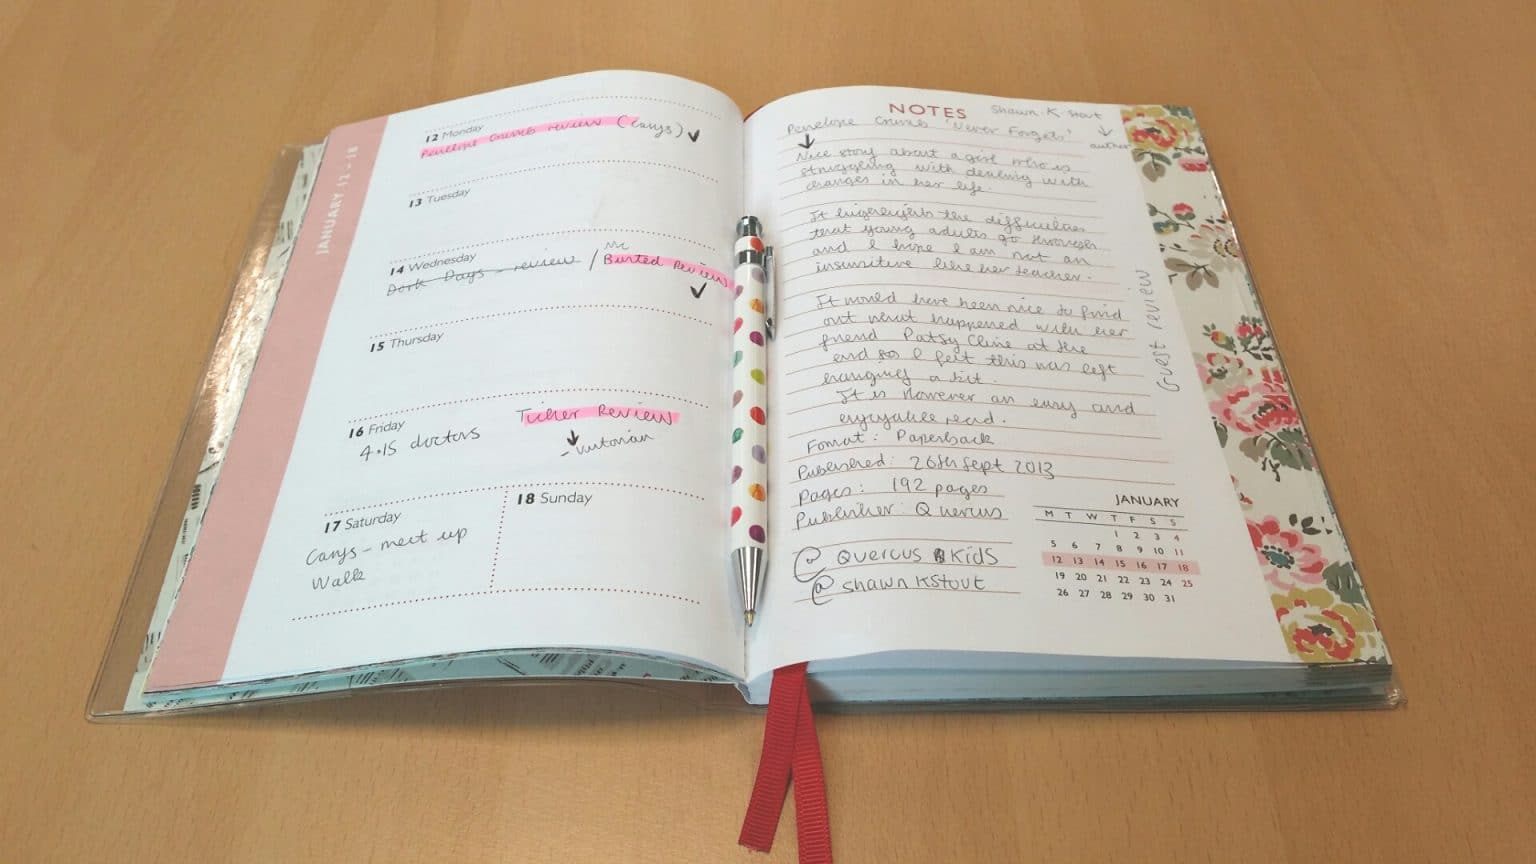 JANUARY 12 - 18
12 Monday
Penelope Crumb review (Carys)
13 Tuesday
14 Wednesday
Dork Days - review / The Buried Review
15 Thursday
16 Friday
4.15 doctors
Ticker Review
- Victorian
17 Saturday
Carys - meet up
Walk
18 Sunday
NOTES
Shawn K Stout
author
Penelope Crumb 'Never Forgets'
Nice story about a girl who is
struggling with dealing with
changes in her life.
It highlights the difficulties
that young adults go through
and I hope I am not an
insensitive like her teacher.
It would have been nice to find
out what happened with her
friend Patsy Cline at the
end so I felt this was left
hanging a bit.
It is however an easy and
enjoyable read.
Guest review
Format: Paperback
Published: 26th Sept 2013
Pages: 192 pages
Publisher: Quercus
@ QUERCUS KIDS
@ shawn KStout
JANUARY
M T W T F S S
1 2 3 4
5 6 7 8 9 10 11
12 13 14 15 16 17 18
19 20 21 22 23 24 25
26 27 28 29 30 31